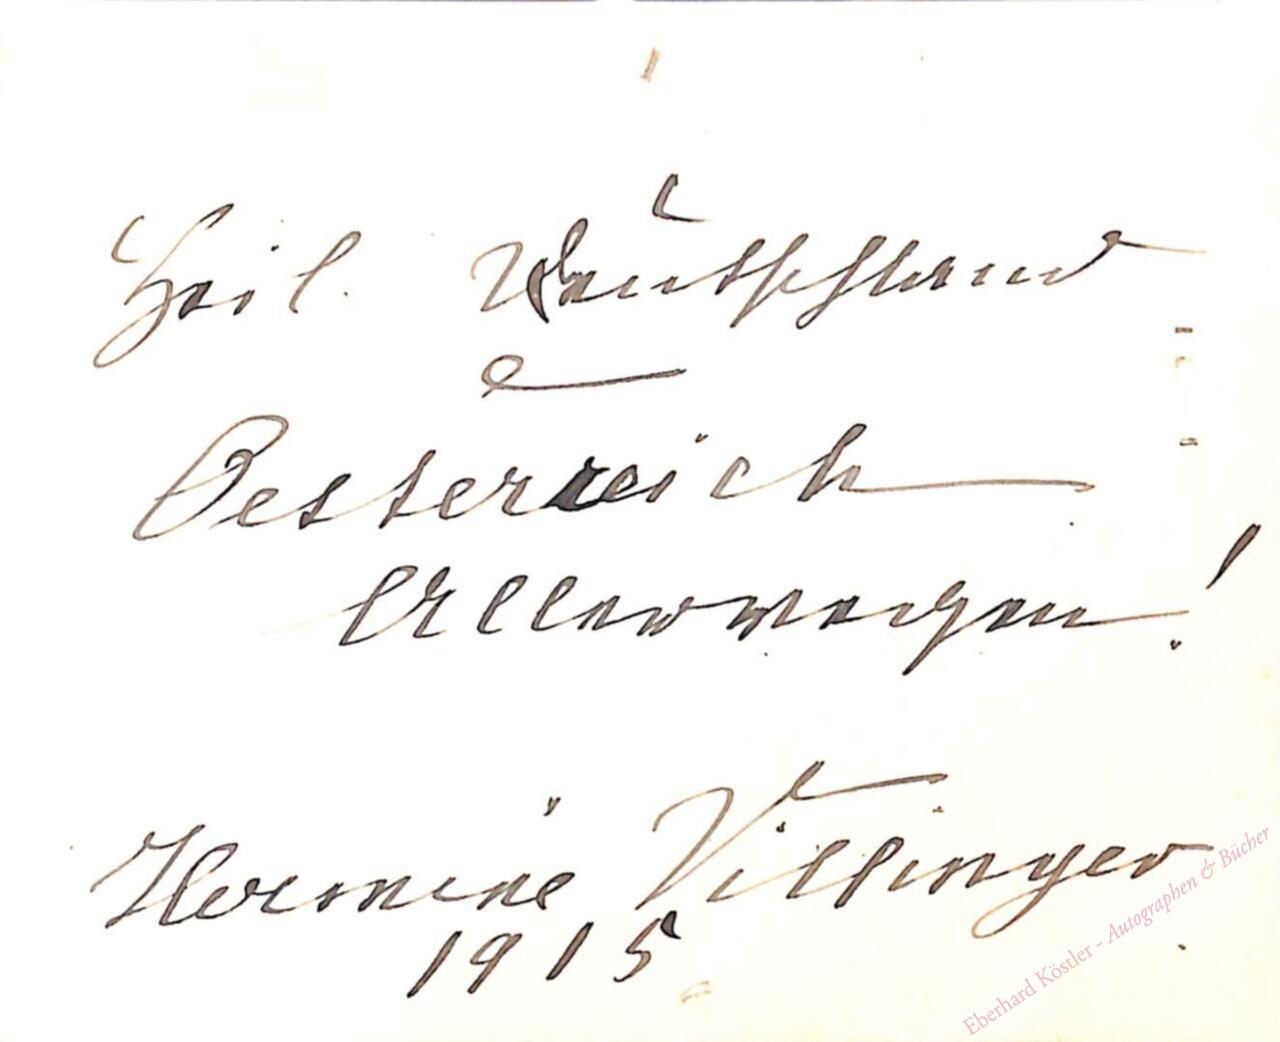 Heil Deutschland
Oesterreich
Allerwegen!
Hermine Villinger
1915
Eberhard Köstler - Autographen & Bücher